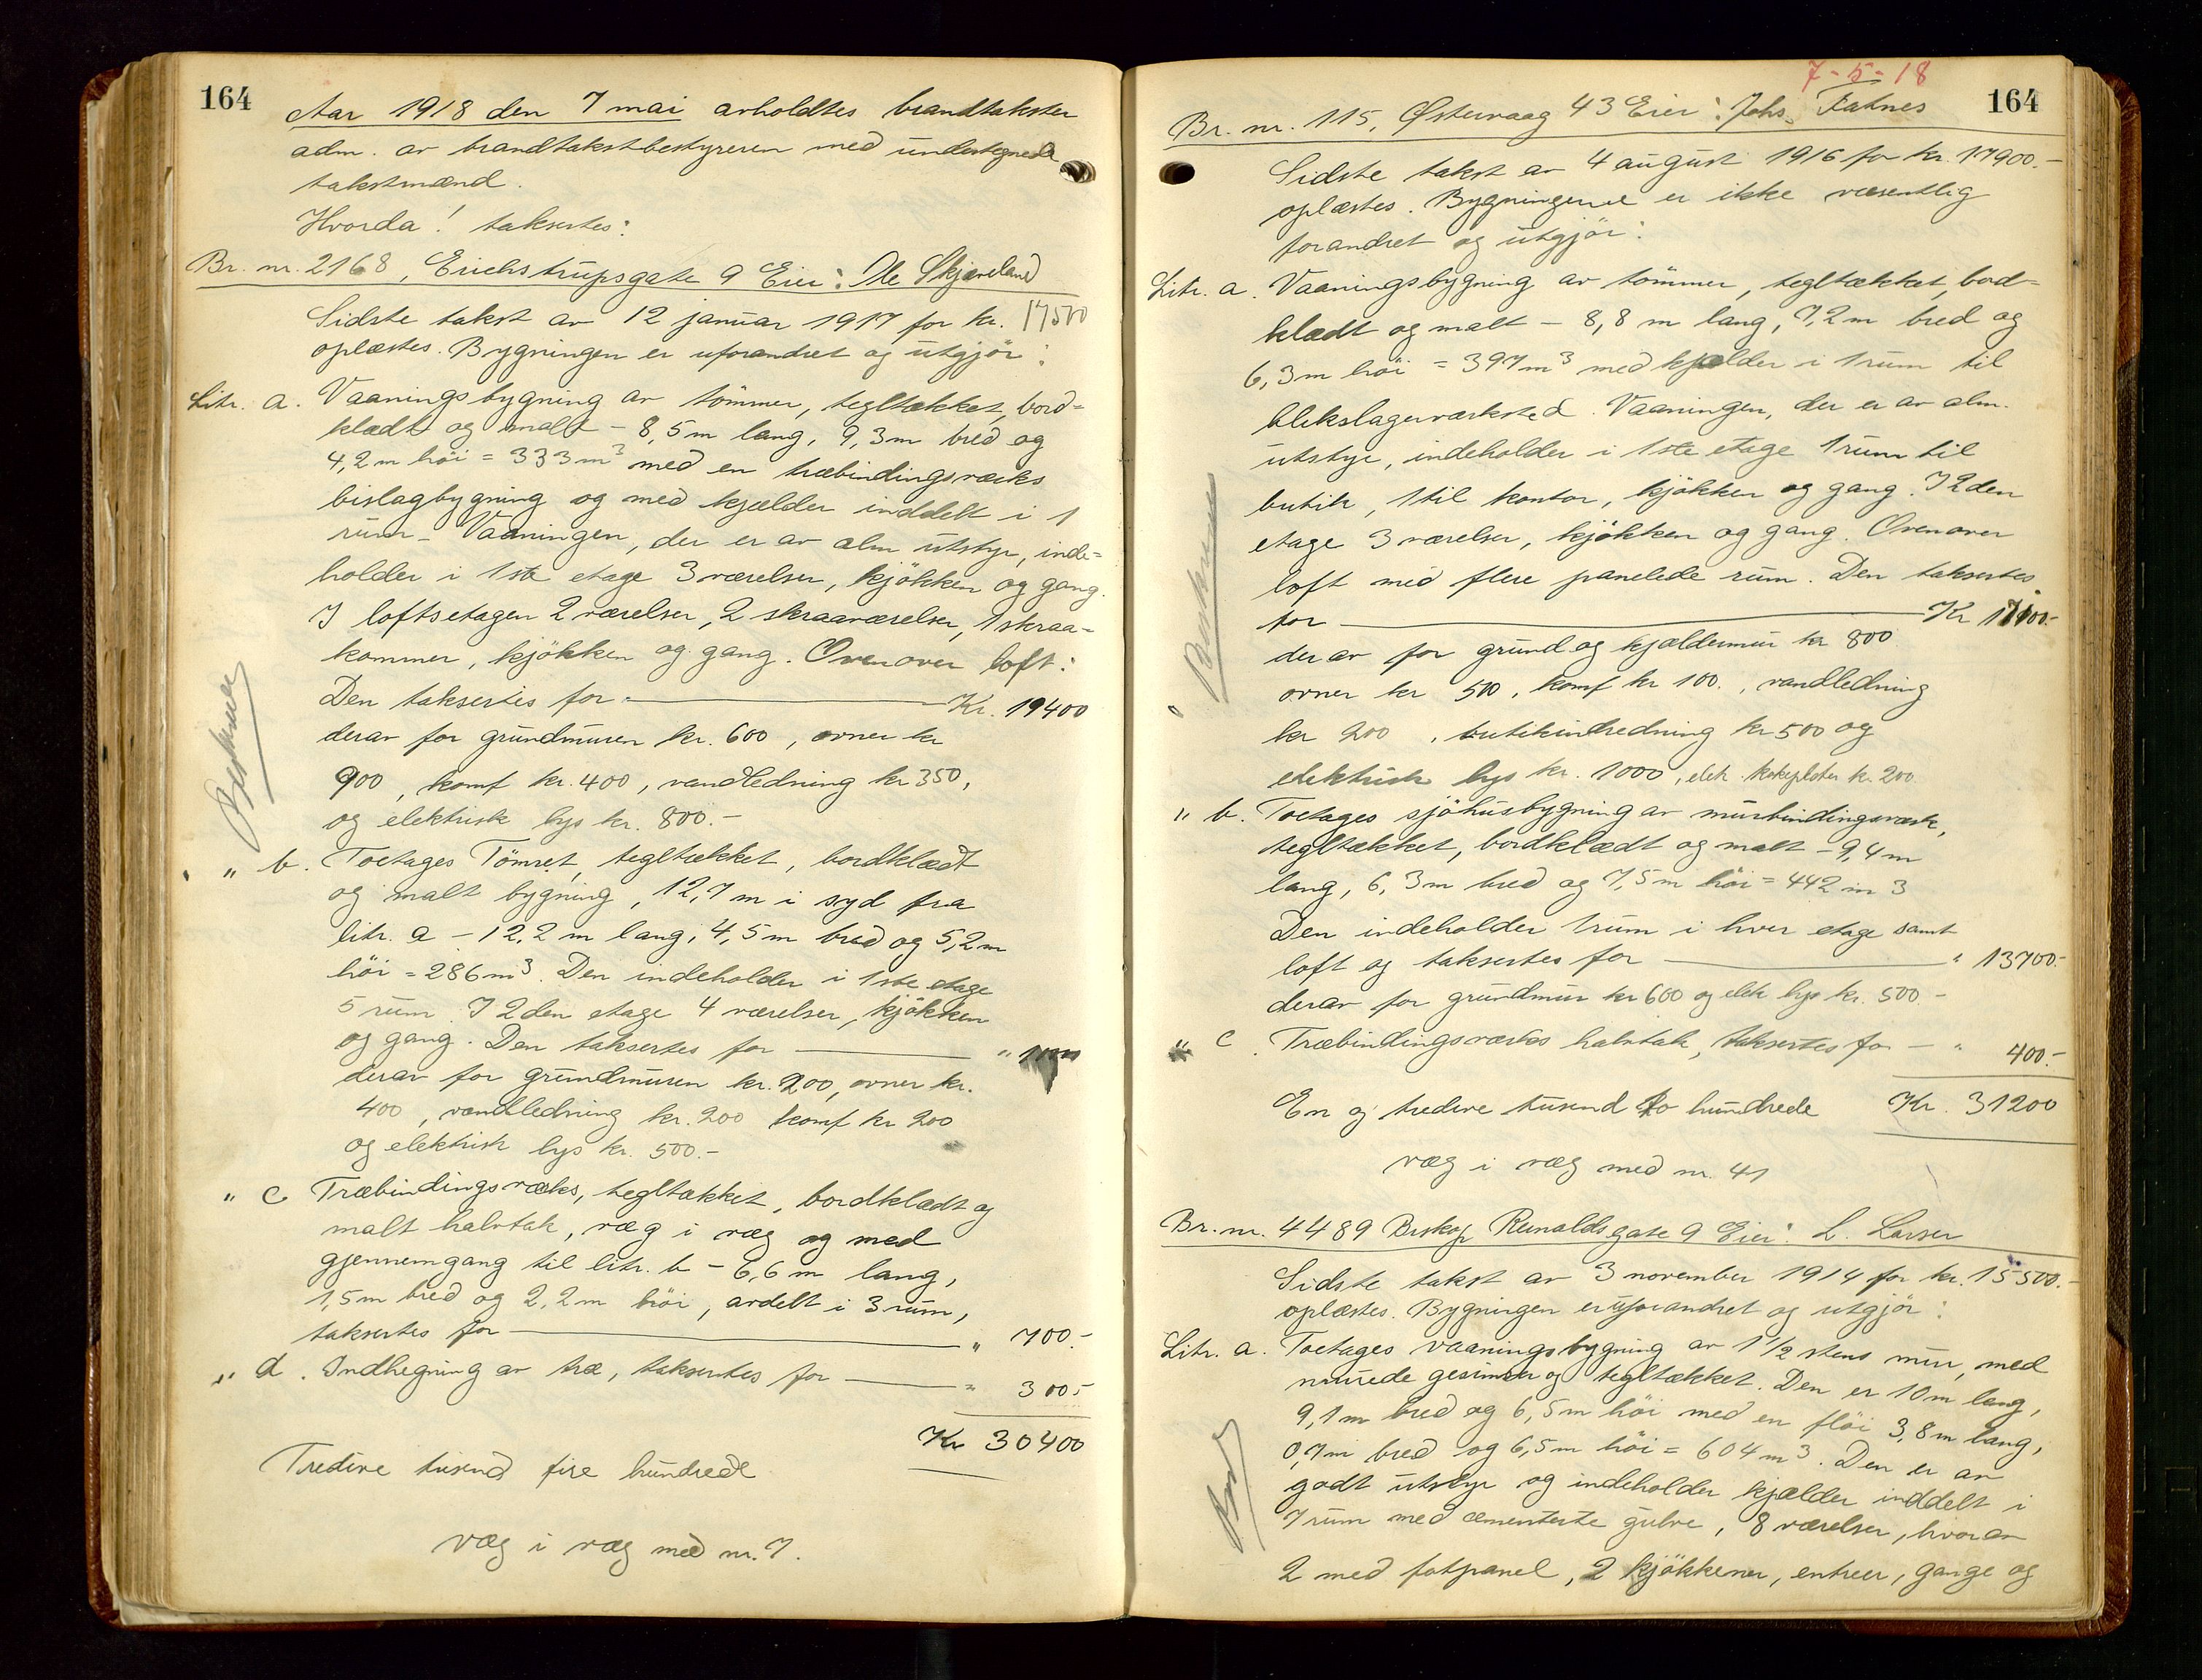 164
Aar 1918 den 7 mai avholdtes brandtakster
adm. av brandtakstbestyreren med undertegnede
takstmænd.
Hvorda! taksertes:
Br. nr. 2168, Erichstrupsgate 9 Eier: Ole Skjæveland
Sidste takst av 12 januar 1917 for kr. 17500
oplæstes. Bygningen er uforandret og utgjör:
Litr. a. Vaaningsbygning av tömmer, tegltækket, bord=
klædt og malt – 8,5 m lang, 9,3 m bred og
4,2 m höi = 333 m³ med en træbindingsværks
bislagbygning og med kjælder inddelt i 1
rum – Vaaningen, der er av alm utstyr, inde=
holder i 1ste etage 3 værelser, kjökken og gang.
I loftsetagen 2 værelser, 2 skraaværelser, 1 skraa-
kammer, kjökken og gang. Ovenover loft:
Den taksertes for – Kr. 19400
derav for grundmuren kr. 600, ovner kr
900, komf kr. 400, vandledning kr 350,
og elektrisk lys kr. 800.-
" b. Toetages Tömret, tegltækket, bordklædt
og malt bygning, 12,7 m i syd fra
litr. a – 12,2 m lang, 4,5 m bred og 5,2 m
höi = 286 m³. Den indeholder i 1ste etage
5 rum. I 2den etage 4 værelser, kjökken
og gang. Den taksertes for – "
derav for grundmuren kr. 200, ovner kr.
400, vandledning kr. 200 komf kr 200
og elektrisk lys kr. 500.-
" c Træbindingsværks, tegltækket, bordklædt og
malt halvtak, væg i væg og med
gjennemgang til litr. b – 6,6 m lang,
1,5 m bred og 2,2 m höi, avdelt i 3 rum,
taksertes for – " 700.-
" d. Indhegning av træ, taksertes for – " 300.-
Kr 30400
Tredive tusend fire hundrede
væg i væg med nr. 7.
Beskrever
7-5-18
164
Br. nr. 115, Østervaag 43 Eier: Johs. Fatnes
Sidste takst av 4 august 1916 for kr. 17900.-
oplæstes. Bygningene er ikke væsentlig
forandret og utgjör:
Litr. a. Vaaningsbygning av tömmer, tegltækket, bord=
klædt og malt – 8,8 m lang, 7,2 m bred og
6,3 m höi = 397 m³ med kjælder i 1 rum til
blikslagerverksted. Vaaningen, der er av alm.
utstyr, indeholder i 1ste etage 1 rum til
butik, 1 til kontor, kjökken og gang. I 2den
etage 3 værelser, kjökken og gang. Ovenover
loft med flere panelede rum. Den taksertes
for – Kr 17100.-
derav for grund og kjældermur kr 800
ovner kr 500, komf kr 100., vandledning
kr 200, butikindredning kr 500 og
elektrisk lys kr. 1000, elek. kokeplater kr. 200.
" b. Toetages sjöhusbygning av murbindingsværk,
tegltækket, bordklædt og malt – 9,4 m
lang, 6,3 m bred og 7,5 m höi = 442 m 3
Den indeholder 1 rum i hver etage samt
loft og taksertes for – " 13700.-
derav for grundmur kr 600 og elek lys kr. 500.-
" c. Træbindingsværks halvtak, taksertes for – " 400.-
En og tredive tusend to hundrede Kr. 31200
væg i væg med nr. 41
Br. nr. 4489 Biskop Reinaldsgate 9 Eier: L. Larsen
Sidste takst av 3 november 1914 for kr. 15500.-
oplæstes. Bygningen er uforandret og utgjör:
Litr. a. Toetages vaaningsbygning av 1 1/2 stens mur, med
murede gesimser og tegltækket. Den er 10 m lang,
9,1 m bred og 6,5 m höi med en flöi 3,8 m lang,
0,7 m bred og 6,5 m höi = 604 m³. Den er av
godt utstyr og indeholder kjælder inddelt i
7 rum med cementerte gulve, 8 værelser, hvorav
2 med fotpanel, 2 kjökkener, entreer, gange og